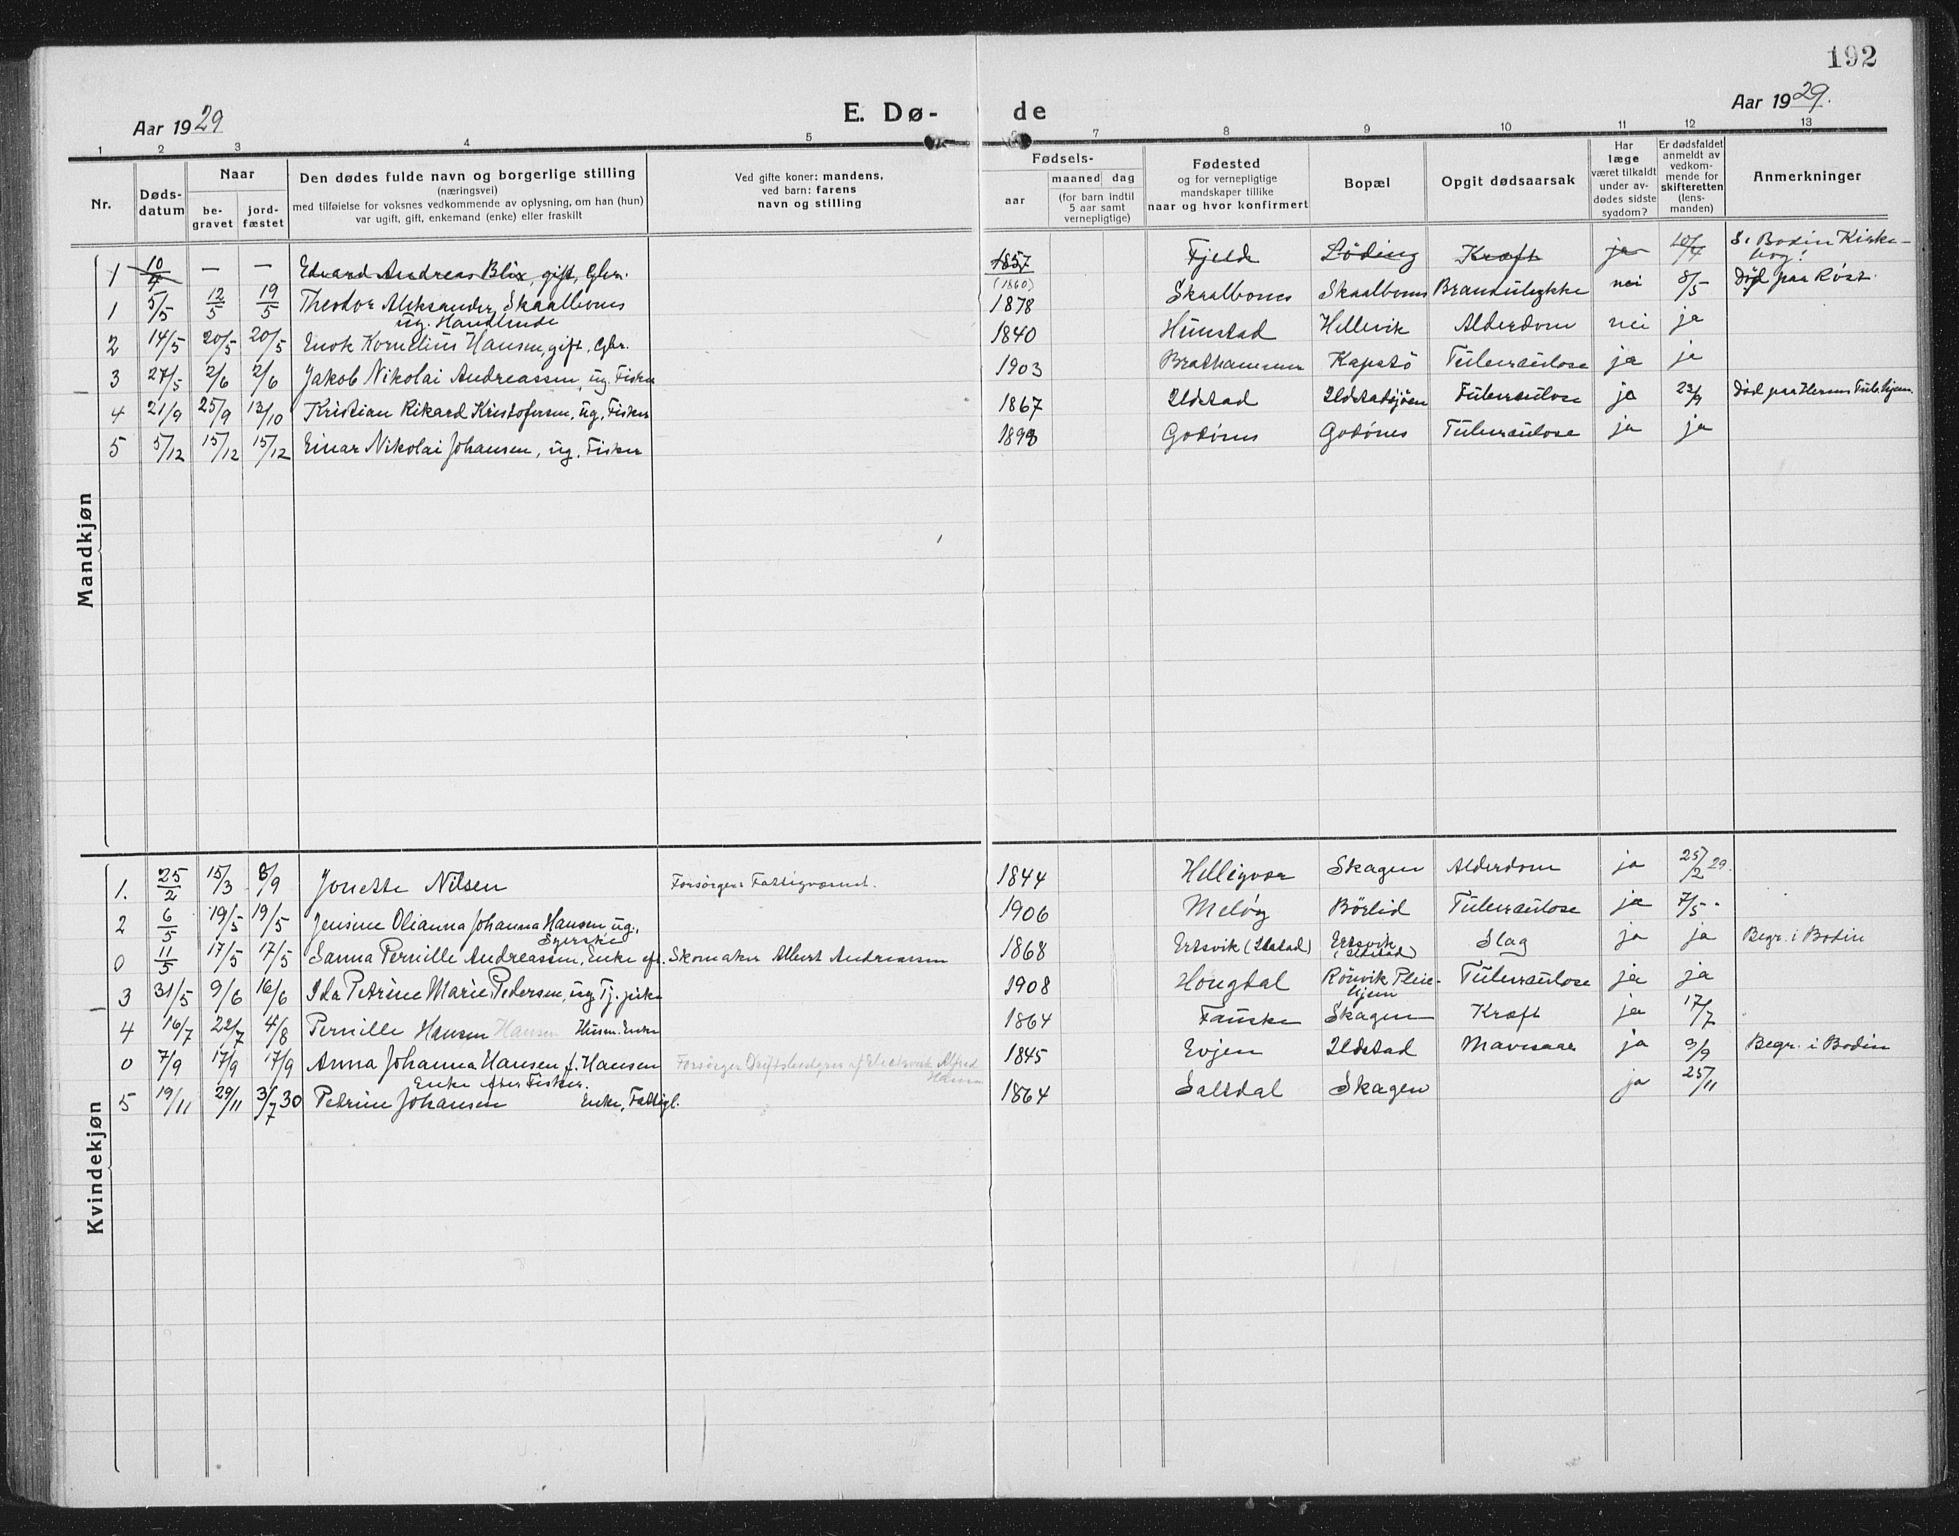 192
Aar 1929
E. Dø-
de
Aar 1929.
1 2 3 4 5 6 7 8 9 10 11 12 13
Nr.
Døds-
datum
Naar
be-
gravet
jord-
fæstet
Den dødes fulde navn og borgerlige stilling
(næringsvei)
med tilføielse for voksnes vedkommende av oplysning, om han (hun)
var ugift, gift, enkemand (enke) eller fraskilt
Ved gifte koner: mandens,
ved barn: farens
navn og stilling
Fødsels-
aar
maaned dag
(for barn indtil
5 aar samt
vernepligtige)
Fødested
og for vernepligtige
mandskaper tillike
naar og hvor konfirmert
Bopæl
Opgit dødsaarsak
Har
læge
været tilkaldt
under av-
dødes sidste
sygdom?
Er dødsfaldet
anmeldt av
vedkom-
mende for
skifteretten
(lens-
manden)
Anmerkninger
Mandkjøn
1 10/4 — — Edvard Andreas Blix, gift, Gbr. 1857 (1860) Fjelde Löding Kræft ja 10/4 S. Bodin Kirke-
bog!
1 5/5 12/5 19/5 Theodor Aleksander Skaalbones 1878 Skaalbones Skaalbones Brandulykke nei 8/5 Död paa Röst.
ug. Handlende
2 14/5 20/5 20/5 Enok Kornelius Hansen, gift, Gbr. 1840 Hunstad Hellevik Alderdom nei ja
3 27/5 2/6 2/6 Jakob Nikolai Andreassen, ug. Fisker 1903 Brathammer Kapstö Tuberculose ja ja
4 21/9 25/9 13/10 Kristian Rikard Kristofersen, ug. Fisker 1867 Ildstad Ildstadsjöen Tuberculose ja 23/9 Död paa Hernes Tub.hjem.
5 5/12 15/12 15/12 Einar Nikolai Johansen, ug. Fisker 1898 Godönes Godönes Tuberculose ja ja
Kvindekjøn
1. 25/2 15/3 8/9 Jonette Nilsen Forsörger: Fattigvæsenet. 1844 Helligvær Skagen Alderdom ja 25/2 29.
2 6/5 19/5 19/5 Jensine Olianna Johanna Hansen, ug. 1906 Melöy Börlid Tuberculose ja 7/5.
Syerske
0 11/5 17/5 17/5 Sanna Pernille Andreassen, Enke eft. Skomaker Albert Andreassen 1868 Ertsvik (Ildstad) Ertsvik (Ildstad) Slag ja ja Begr. i Bodin
3 31/5 9/6 16/6 Ida Petrine Marie Pedersen, ug. Tj. pike 1908 Hongdal Rönvik Pleie-
hjem Tuberculose ja ja
4 16/7 22/7 4/8 Pernille Hansen Hansen Husm. Enke 1864 Fauske Skagen Kræft ja 17/7
0 7/9 17/9 17/9 Anna Johanna Hansen f. Hansen Forsörger Driftsbestyrer af Electr.verk Alfred
Hansen 1845 Evjen Ildstad Mavesaar ja 9/9 Begr. i Bodin
Enke efter Fisker.
5 19/11 29/11 3/7 30 Petrine Johansen Enke, Fattigl. 1864 Saltdal Skagen ja 25/11